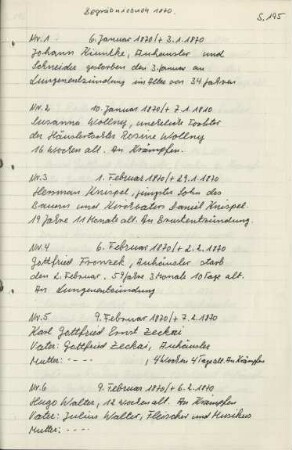 Begräbnisbuch 1870.
S. 145
Nr. 1 6. Januar 1870/+ 3.1.1870
Johann Künstle, Auhäusler und
Schneider gestorben den 3. Januar an
Lungenentzündung im Alter von 34 Jahren
Nr. 2 10. Januar 1870/+ 7.1.1870
Susanna Wollny, uneheliche Tochter
der Häuslertochter Rosine Wollny
16 Wochen alt. An Krämpfen.
Nr. 3 1. Februar 1870/+ 29.1.1870
Herman Knispel, jüngster Sohn des
Bauern und Daniel Knispel.
19 Jahre 11 Monate alt. An Brustentzündung.
Nr. 4 6. Februar 1870/+ 2.2.1870
Gottfried Auhäusler starb
den 2. Februar. 57 Jahre 3 Monate 10 Tage alt.
An Lungenentzündung
Nr. 5 9. Februar 1870/+ 7.2.1870
Karl Gottfried Ernst Zeckai
Vater: Gottfried Zeckai, Auhäusler
Mutter: - - - - , 4 Wochen 4 Tage alt. An Krämpfen
Nr. 6 9. Februar 1870/+ 6.2.1870
Hugo Walter, 12 Wochen alt. An Krämpfen
Vater: Julius Walter, Fleischer und Musikus
Mutter: - - - -